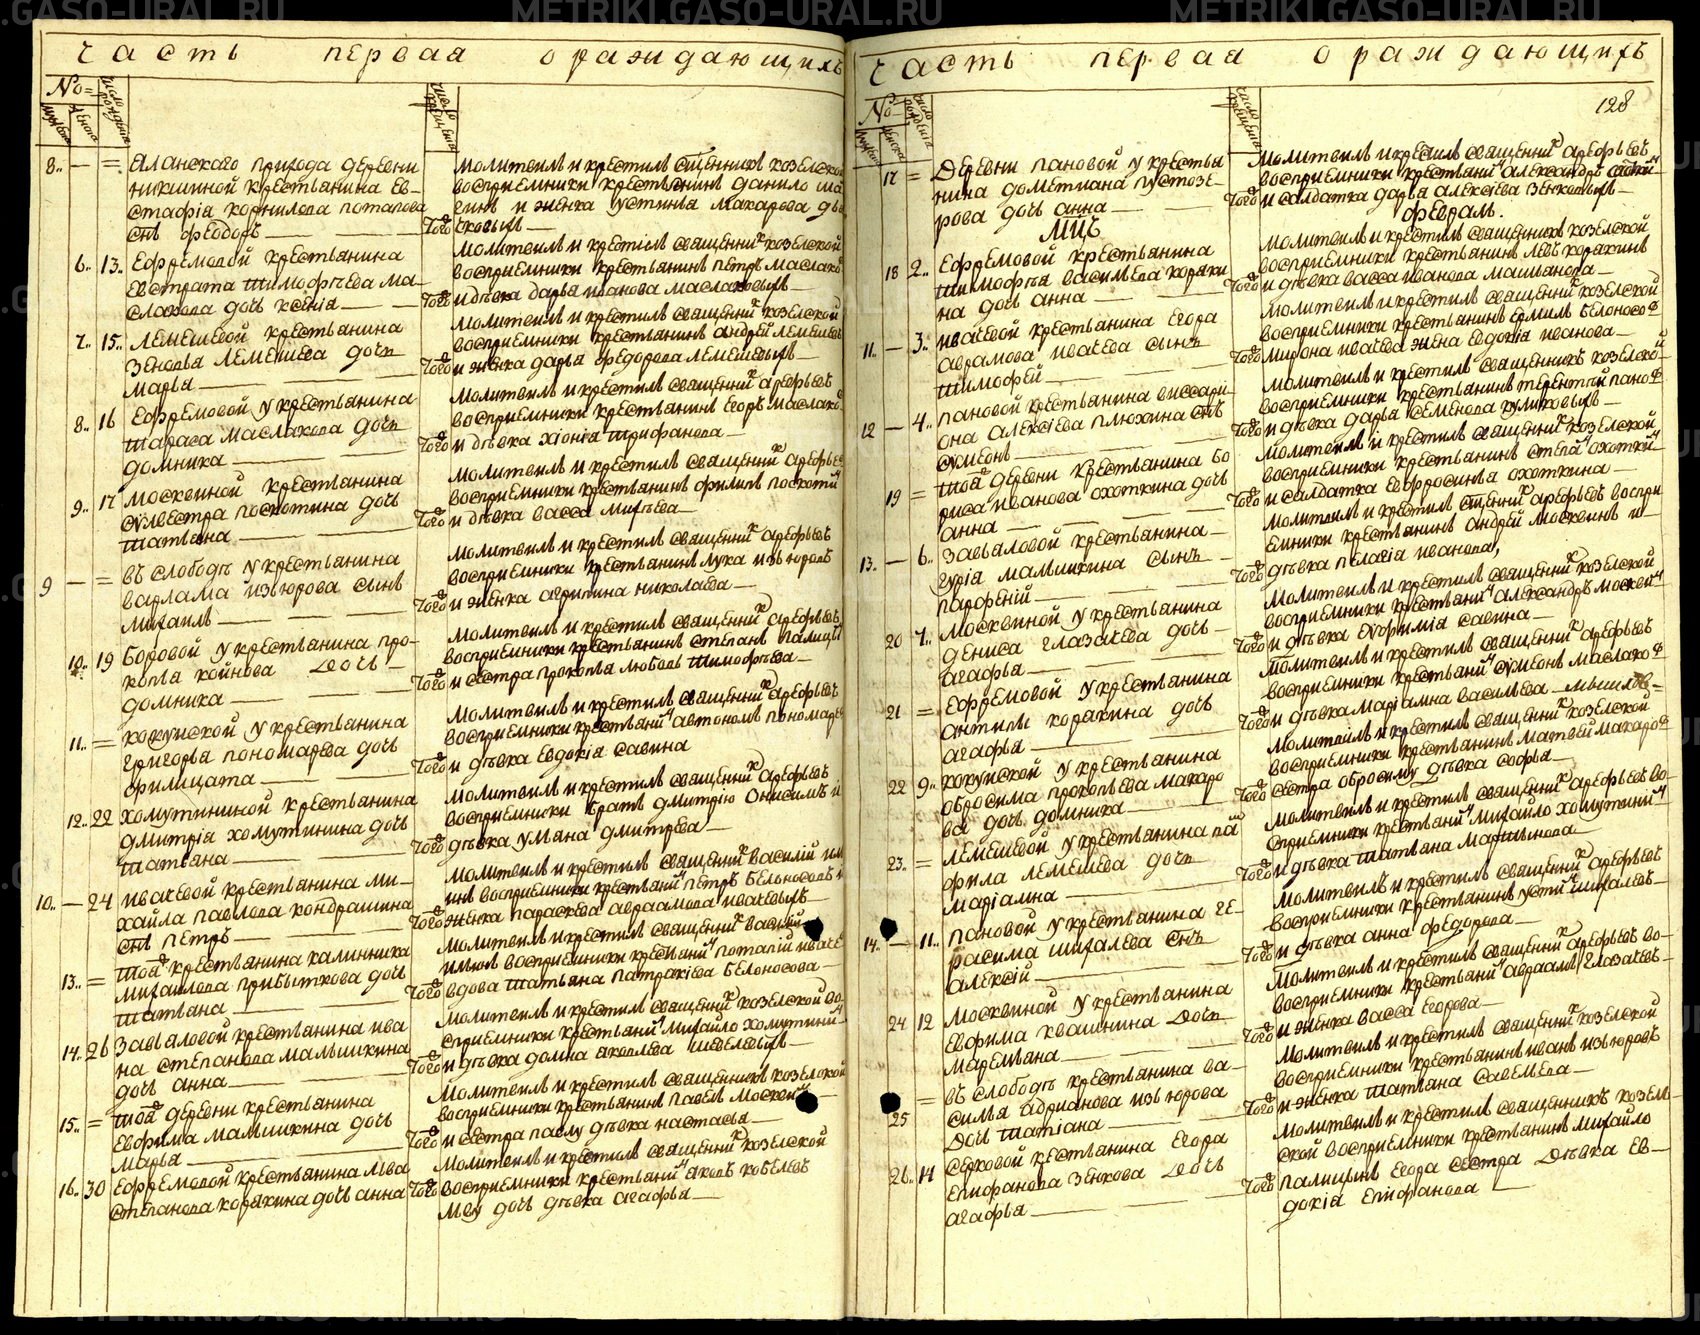 часть первая о раждающихъ
№
8.. — = Яланскаго прихода деревни
никитиной крестьянина ев-
стафія корнилова потапова
снъ феодоръ
молитвилъ и крестилъ сщенникъ козелской
восприемники крестьянинъ данило
и женка устинья макарова
того
6.. 13.. Ефремовой крестьянина
Евстрата тимофѣева ма-
слакова дочь ксенія
молитвилъ и крестилъ священникъ козелской
восприемники крестьянинъ петръ маслаков
того и дѣвка дарья иванова маслаковыхъ
7.. 15.. лемешевой крестьянина
зеновья лемешева дочь
марья
молитвилъ и крестилъ священникъ козелской
восприемники крестьянинъ андрей лемешевъ
того и женка дарья федорова лемешевыхъ
8.. 16 Ефремовой у крестьянина
тараса маслакова дочь
домника
молитвилъ и крестилъ священникъ арефьевъ
восприемники крестьянинъ Егоръ маслаков
того и дѣвка хіонія трифанова
9.. 17 москвиной крестьянина
сѵлвестра поскотина дочь
татьяна
молитвилъ и крестилъ священникъ арефьев
восприемники крестьянинъ филипъ поскотин
того и дѣвка васса михѣева
9 — = въ слободѣ у крестьянина
варлама изьюрова сынъ
михаилъ
молитвилъ и крестилъ священникъ арефьевъ
восприемники крестьянинъ лука изьюровъ
того и женка агрипина николаева
10.. 19 Боровой у крестьянина про-
копья койнова дочь
домника
молитвилъ и крестилъ священникъ арефьевъ
восприемники крестьянинъ степанъ палицын
того и сестра прокопья любовь тимофѣева
11.. = кокуйской у крестьянина
григорья пономарева дочь
филицата
молитвилъ и крестилъ священникъ арефьевъ
восприемники крестьянинъ автономъ пономарев
того и дѣвка Евдокія савина
12.. 22 хомутининой крестьянина
дмитрія хомутинина дочь
татьяна
молитвилъ и крестилъ священникъ арефьевъ
восприемники братъ дмитрію Онисимъ и
того дѣвка ульяна дмитрева
10.. — 24 ивачевой крестьянина ми-
хайла павлова кондрашина
снъ петръ
молитвилъ и крестилъ священникъ василій
восприемники крестьянинъ петръ Белоносовъ и
того женка параскева авраамова ивачевыхъ
13.. = той крестьянина калинника
михаилова прибыткова дочь
татьяна
молитвилъ и крестилъ священникъ василій
восприемники крестьянинъ потапій иваче
того вдова татьяна патракіева Белоносова
14.. 26 завьяловой крестьянина ива
на степанова мальишкина
дочь анна
молитвилъ и крестилъ священникъ козелской во-
сприемники крестьянинъ михайло хомутинин
того и дѣвка домна яковлева шевелевыхъ
15.. = той деревни крестьянина
Евфима мальишкина дочь
марья
молитвилъ и крестилъ священникъ козелской
восприемники крестьянинъ павелъ москвин
того и сестра павлу дѣвка настасья
16.. 30 Ефремовой крестьянина лва
степанова корякина дочь анна
молитвилъ и крестилъ священникъ козелской
того восприемники крестьянинъ яковъ кобелевъ
дочь дѣвка агафья
часть первая о раждающихъ
128
№
17 = Деревни пановой у крестья
нина дометиана пустозе-
рова дочь анна
молитвилъ и крестилъ священникъ арефьевъ
восприемники крестьянинъ александръ
того и салдатка дарья алексіева зенковыхъ
мцъ февраль.
18 2.. Ефремовой крестьянина
тимофѣя васильева коряки
на дочь анна
молитвилъ и крестилъ священникъ козелской
восприемники крестьянинъ левъ корякинъ
того и дѣвка васса иванова
11.. — 3.. ивачевой крестьянина Егора
аврамова ивачева сынъ
тимофей
молитвилъ и крестилъ священникъ козелской
восприемники крестьянинъ Ермилъ Белоносов
того мирона ивачева жена Евдокія иванова
12 — 4.. пановой крестьянина виссари-
она алексіева плюхина снъ
сѵмеонъ
молитвилъ и крестилъ священникъ козелской
восприемники крестьянинъ терентий панов
того и дѣвка дарья семенова куликовыхъ
19 = той деревни крестьянина Бо
риса иванова охоткина дочь
анна
молитвилъ и крестилъ священникъ козелской
восприемники крестьянинъ степан охоткин
того и салдатка Евфросинья охоткина
13.. — 6.. завьяловой крестьянина
гурія мальишкина сынъ
парфеній
молитвилъ и крестилъ сщенникъ арефьевъ воспри
емники крестьянинъ андрей москвинъ и
того дѣвка пелагія иванова,
20 7.. москвиной у крестьянина
дениса глазачева дочь
агафья
молитвилъ и крестилъ священникъ козелской
восприемники крестьянинъ александръ москвин
того и дѣвка Еѵфимія савина
21 = Ефремовой у крестьянина
антипы корякина дочь
агафья
молитвилъ и крестилъ священникъ арефьевъ
восприемники крестьянинъ сѵмеонъ маслаков
того и дѣвка маріамна васильева
22 9.. кокуйской у крестьянина
обросима прокопьева макаро
ва дочь домника
молитвилъ и крестилъ священникъ козелской
восприемники крестьянинъ матвей макаров
того сестра обросиму дѣвка софья
23.. = лемешевой у крестьянина пан
фила лемешева дочь
маріамна
молитвилъ и крестилъ священникъ арефьевъ во-
сприемники крестьянинъ михайло хомутинин
того и дѣвка татьяна мартынова
14.. — 11.. пановой у крестьянина ге-
расима михалева снъ
алексій
молитвилъ и крестилъ священникъ арефьевъ
восприемники крестьянинъ устин михалевъ
того и дѣвка анна федорова
24 12 москвиной у крестьянина
Евфима квашнина дочь
маремьяна
молитвилъ и крестилъ священникъ арефьевъ во-
восприемники крестьянинъ авраамъ глазачевъ
того и женка васса Егорова
25 = въ слободѣ крестьянина ва-
силья адрианова изьюрова
дочь татіана
молитвилъ и крестилъ священникъ козелской
восприемники крестьянинъ иванъ изьюровъ
того и женка татьяна савельева
26.. 14 серковой крестьянина Егора
Епифанова зенкова дочь
агафья
молитвилъ и крестилъ священникъ козел-
ской восприемники крестьянинъ михайло
того палицынъ Егора сестра дѣвка Ев-
докія Епифанова